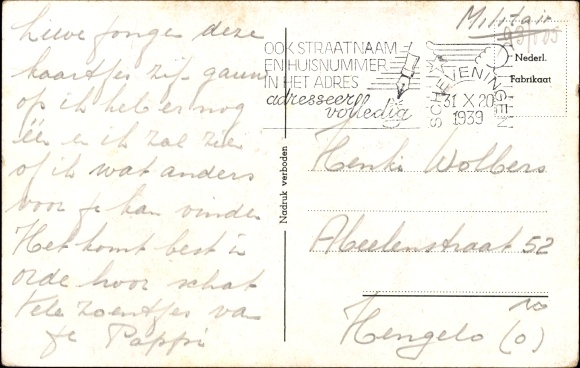 Lieve jongen deze
kaartjes zijn gauw
op ik heb er nog
één en ik zal zien
of ik wat anders
voor je kan vinden
Het komt best in
orde hoor schat
Vele zoentjes van
je Pappi
Militair
OOK STRAATNAAM
EN HUISNUMMER
IN HET ADRES
adresseer
volledig
SCHEVENINGEN
31 X 20
1939
Nederl.
Fabrikaat
Nadruk verboden
Henki Wolbers
Abeelenstraat 52
Hengelo (O)